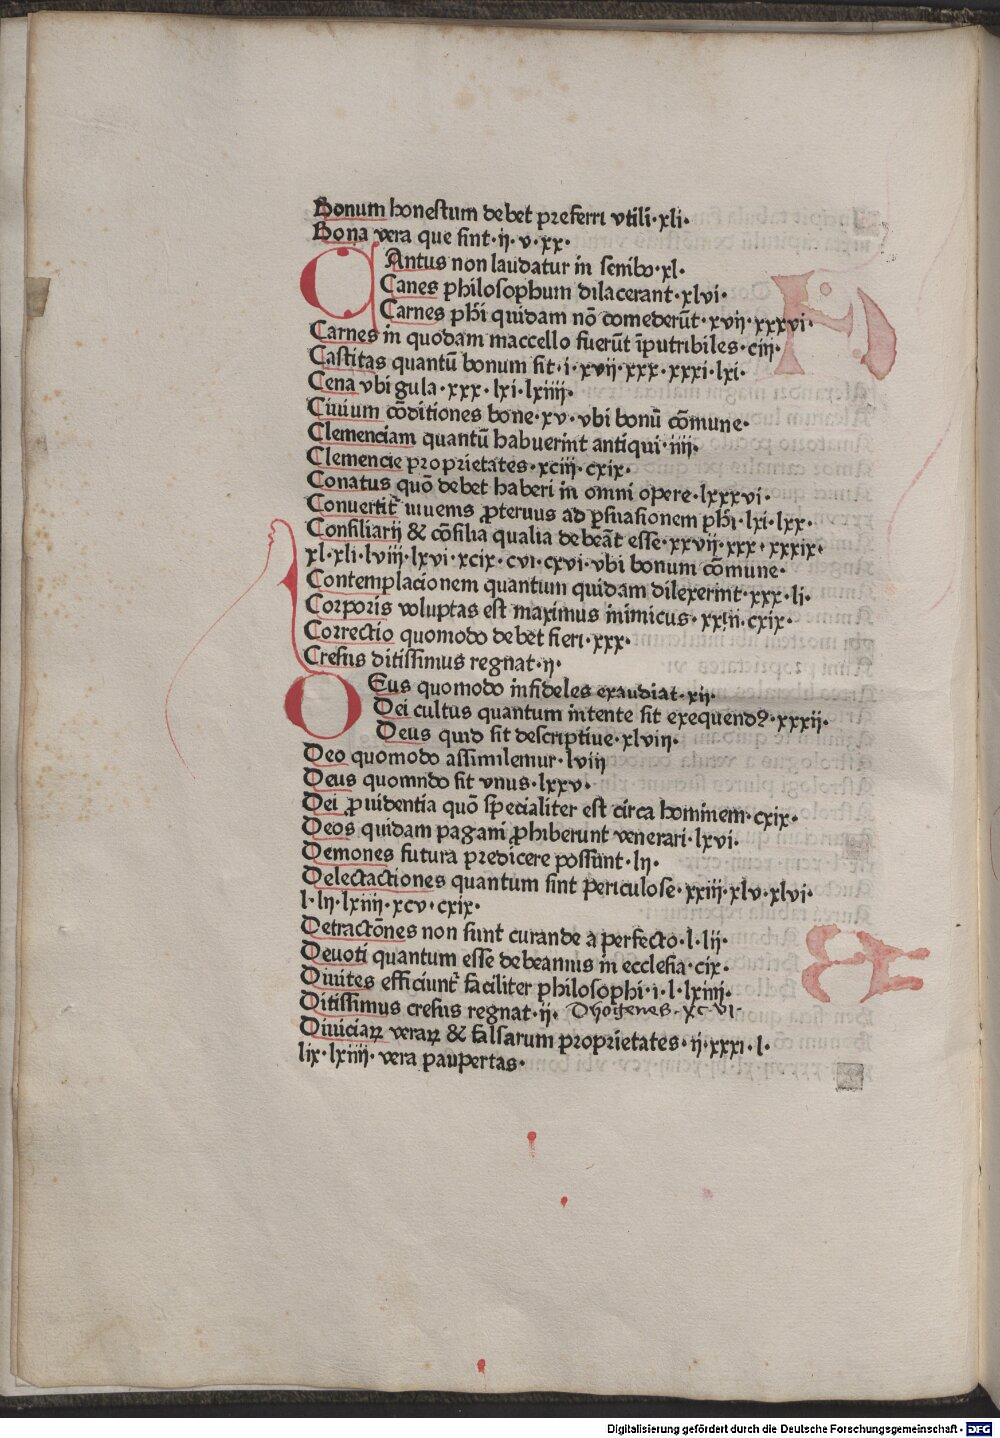 Bonum honestum debet preferri vtili·xli·
Bona vera que sint·ij·v·xx·
CAntus non laudatur in senibꝰ·xl·
Canes philosophum dilacerant·xlvi·
Carnes phi̅ quidam nō comederūt·xvij·xxxvi·
Carnes in quodam maccello fuerūt īputribiles·ciij·
Castitas quantū bonum sit·i·xvij·xxx·xxxi·lxi·
Cena vbi gula·xxx·lxi·lxiiij·
Ciuium cōditiones bone·xv·vbi bonū cōmune·
Clemenciam quantū habuerint antiqui·iiij·
Clemencie proprietates·xciij·cxix·
Conatus quō debet haberi in omni opere·lxxxvi·
Conuertit̄ iuuems ꝓteruus ad ꝑsuasionem phi̅·lxi·lxx·
Consiliarij & cōsilia qualia debeāt esse·xxvij·xxx·xxxix·
xl·xli·lviij·lxvi·xcix·cvi·cxvi·vbi bonum cōmune·
Contemplacionem quantum quidam dilexerint·xxx·li·
Corporis voluptas est maximus inimicus·xxiij·cxix·
Correctio quomodo debet fieri·xxx·
Cresus ditissimus regnat·ij·
DEus quomodo infideles exaudiat·xij·
Dei cultus quantum intente sit exequendꝰ·xxxij·
Deus quid sit descriptiue·xlviij·
Deo quomodo assimilemur·lviij
Deus quomndo sit vnus·lxxv·
Dei ꝓuidentia quō specialiter est circa hominem·cxix·
Deos quidam pagani ꝓhiberunt venerari·lxvi·
Demones futura predicere possunt·lij·
Delectactiones quantum sint periculose·xxiij·xlv·xlvi
l·lij·lxiiij·xcv·cxix·
Detractōnes non sunt curande a perfecto·l·lij·
Deuoti quantum esse debeamus in ecclesia·cix·
Diuites efficiunt̄ faciliter philosophi·i·l·lxiiij·
Ditissimus cresus regnat·ij· Dyogenes·xcvi·
Diuiciaꝝ veraꝝ & falsarum proprietates·ij·xxxi·l·
lix·lxiiij·vera paupertas·
Digitalisierung gefördert durch die Deutsche Forschungsgemeinschaft - DFG